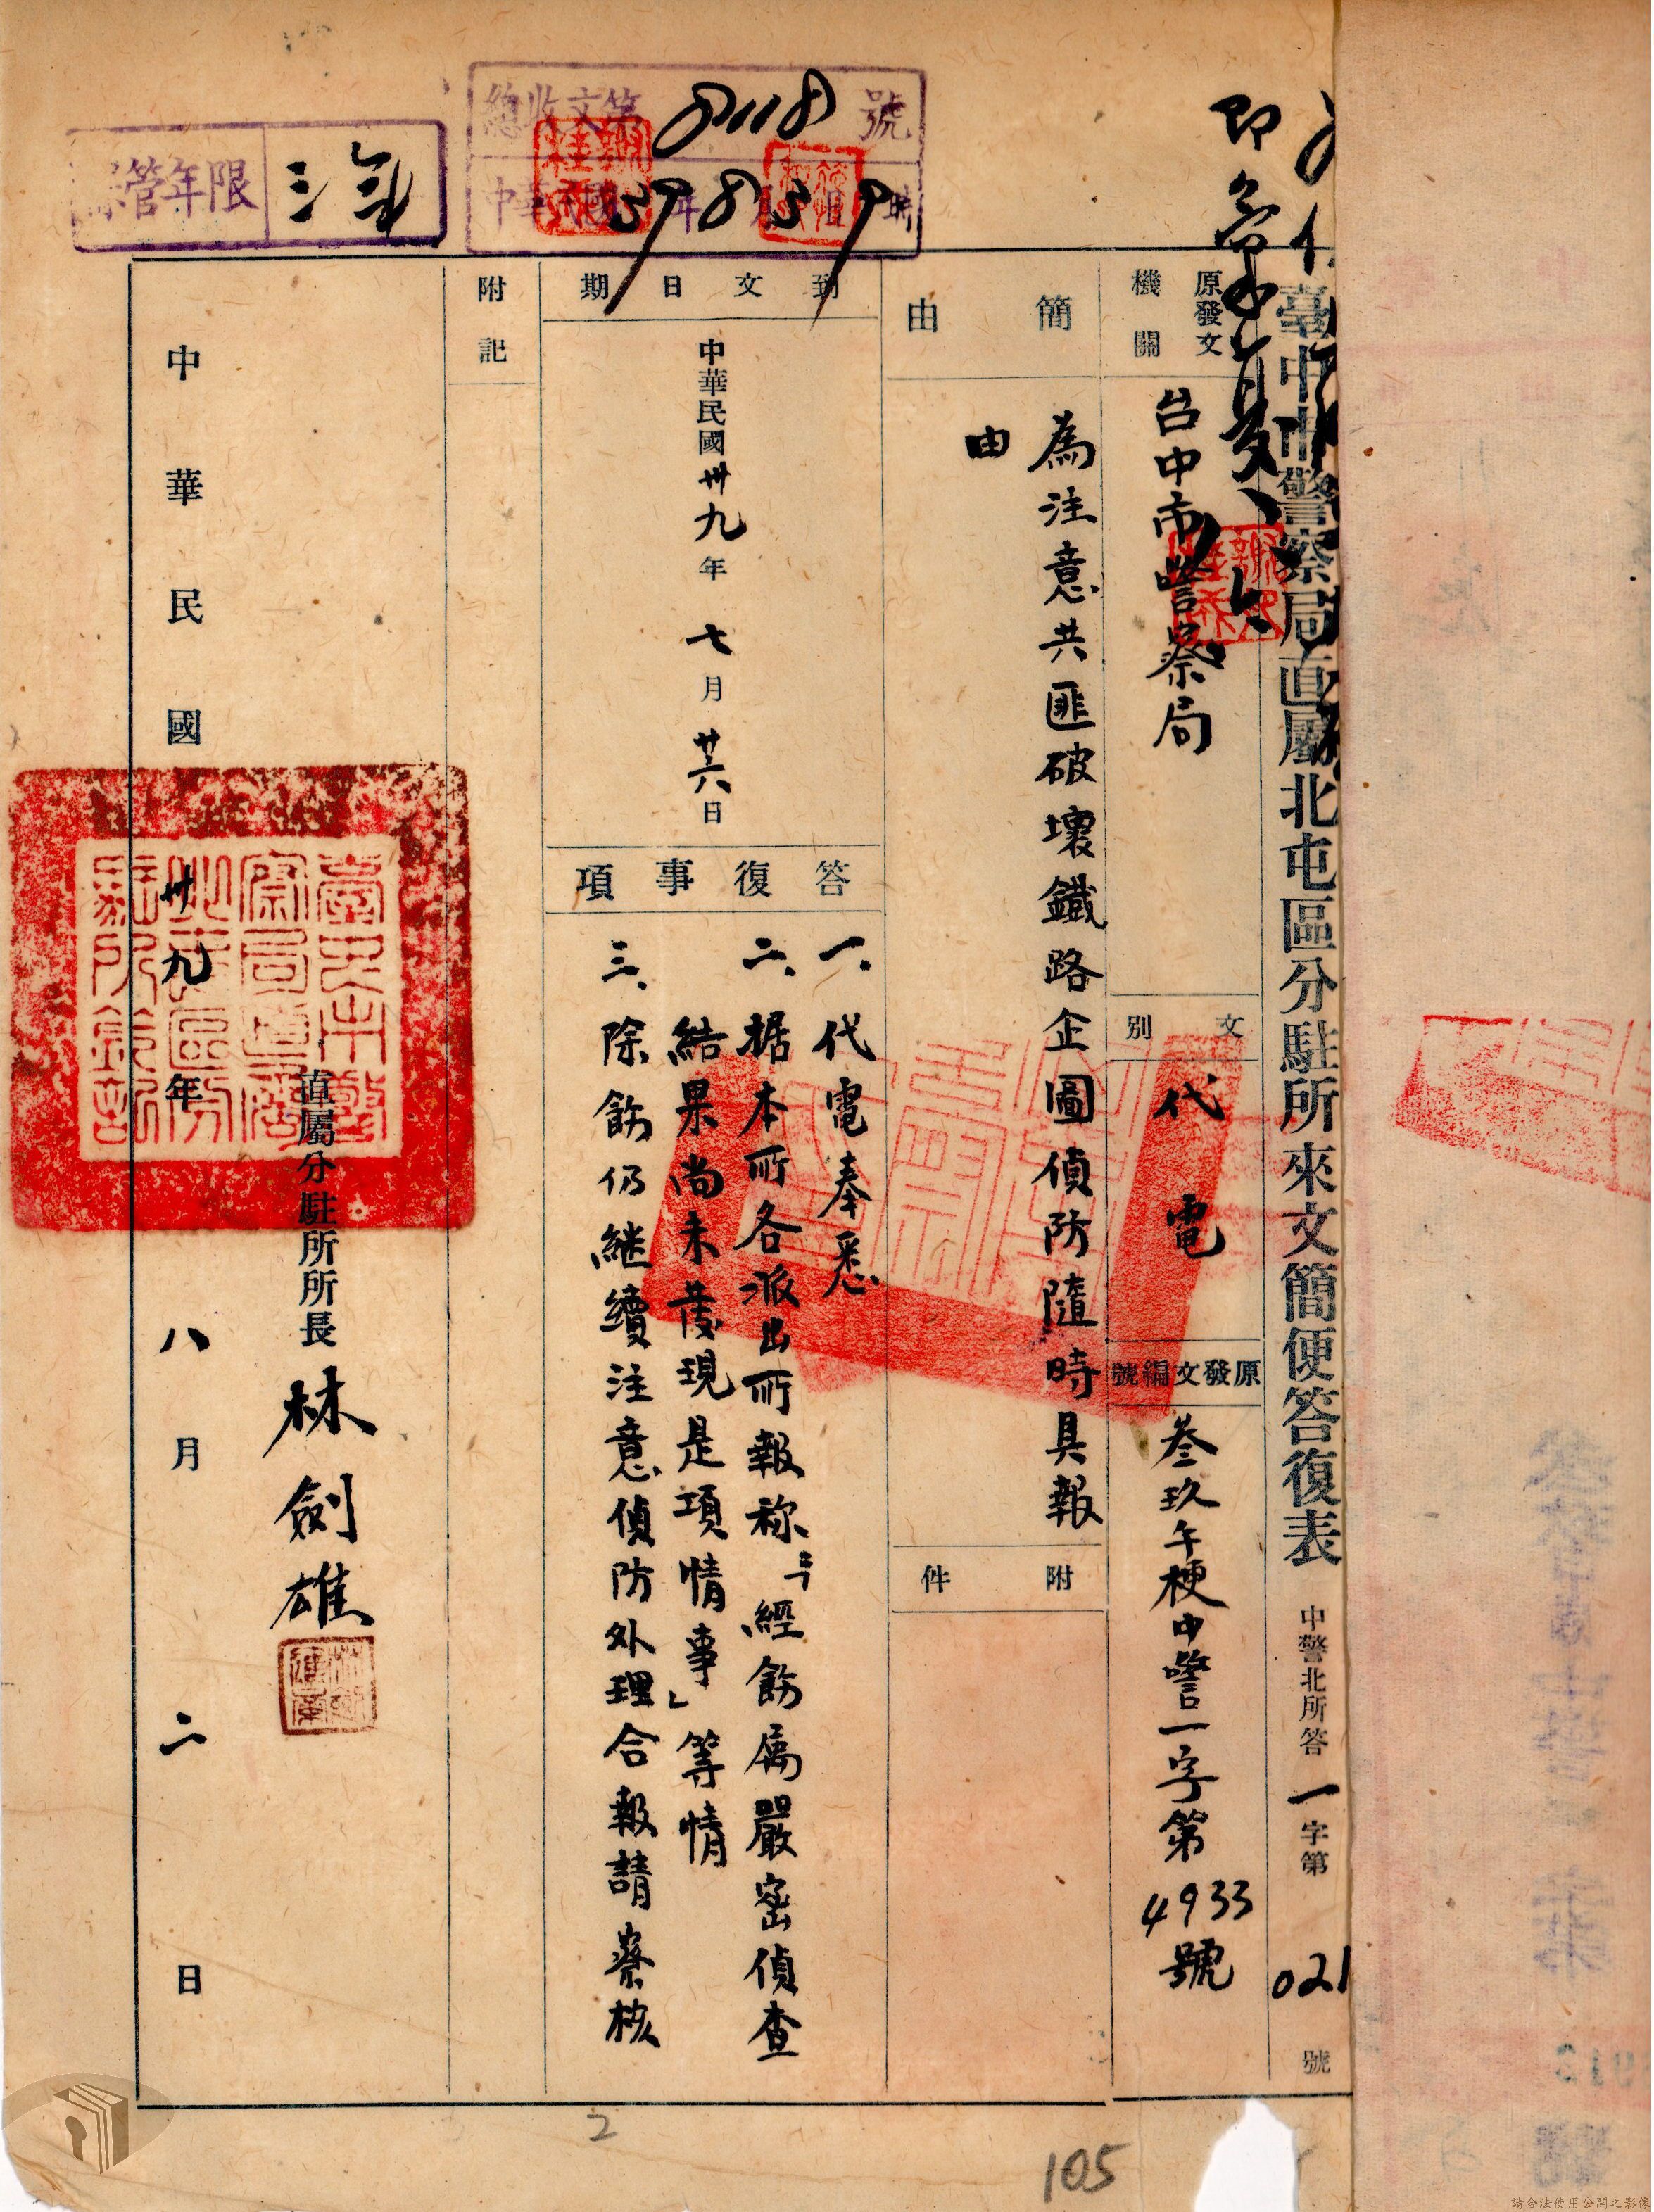 臺中市警察局直屬北屯區分駐所來文簡便答復表
中警北所答一字第021號
原發文機關
台中市警察局
文別
代電
原發文編號
叁玖午梗中警一字第4933號
簡由
為注意共匪破壞鐵路企圖偵防隨時具報
由
附件
到文日期
中華民國卅九年七月廿六日
答復事項
一、代電奉悉
二、据本所各派出所報称:「經飭属嚴密偵查
結果尚未發現是項情事」等情
三、除飭仍継續注意偵防外理合報請察核
附記
直屬分駐所所長林劍雄
中華民國卅九年八月二日
總收文第8118號
中華民國39年8月3日9時
保管年限
三年
2
105
請合法使用公開之影像